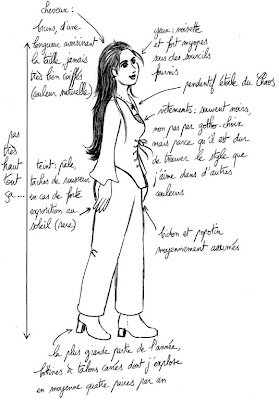 cheveux :
bruns, d'une
longueur avoisinant
la taille, jamais
très bien coiffés
(couleur naturelle)
yeux : noisette
et fort myopes
sous des sourcils
fournis
pendentif étoile du Chaos
vêtements : souvent noirs,
non pas par gotho-choix
mais parce qu'il est dur
de trouver le style que
j'aime dans d'autres
couleurs
pas
très
haut
tout
ça...
teint : pâle,
taches de rousseur
en cas de forte
exposition au
soleil (rare)
bidon et popotin
moyennement assumés
la plus grande partie de l'année,
bottines à talons carrés dont j'explose
en moyenne quatre paires par an